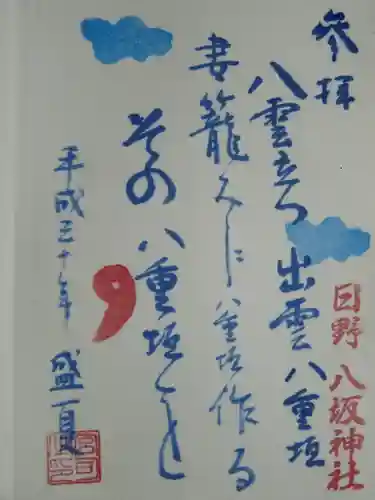 参拝
八雲立つ出雲八重垣
妻籠みに八重垣作る
その八重垣を
平成三十年 盛夏
日野八坂神社
宮司之印